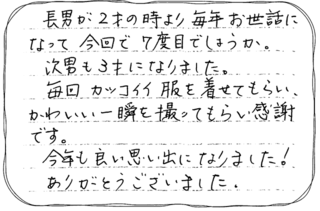 長男が2才の時より毎年お世話に
なって今回で7度目でしょうか。
次男も3才になりました。
毎回カッコイイ服を着せてもらい、
かわいい一瞬を撮ってもらい感謝
です。
今年も良い思い出になりました!
ありがとうございました.